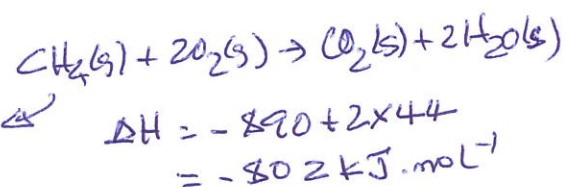 CH₄(g) + 2O₂(g) → CO₂(g) + 2H₂O(g)
ΔH = -890 + 2×44
= -802 kJ.mol⁻¹